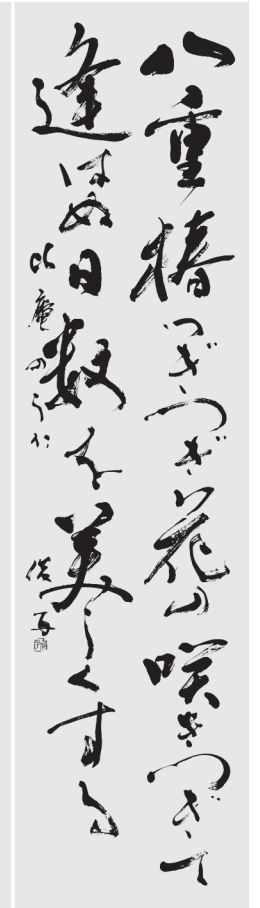 八重椿つぎつぎつぎ花の咲きつぎて
逢はぬ日数を美しくする
比庵のうた